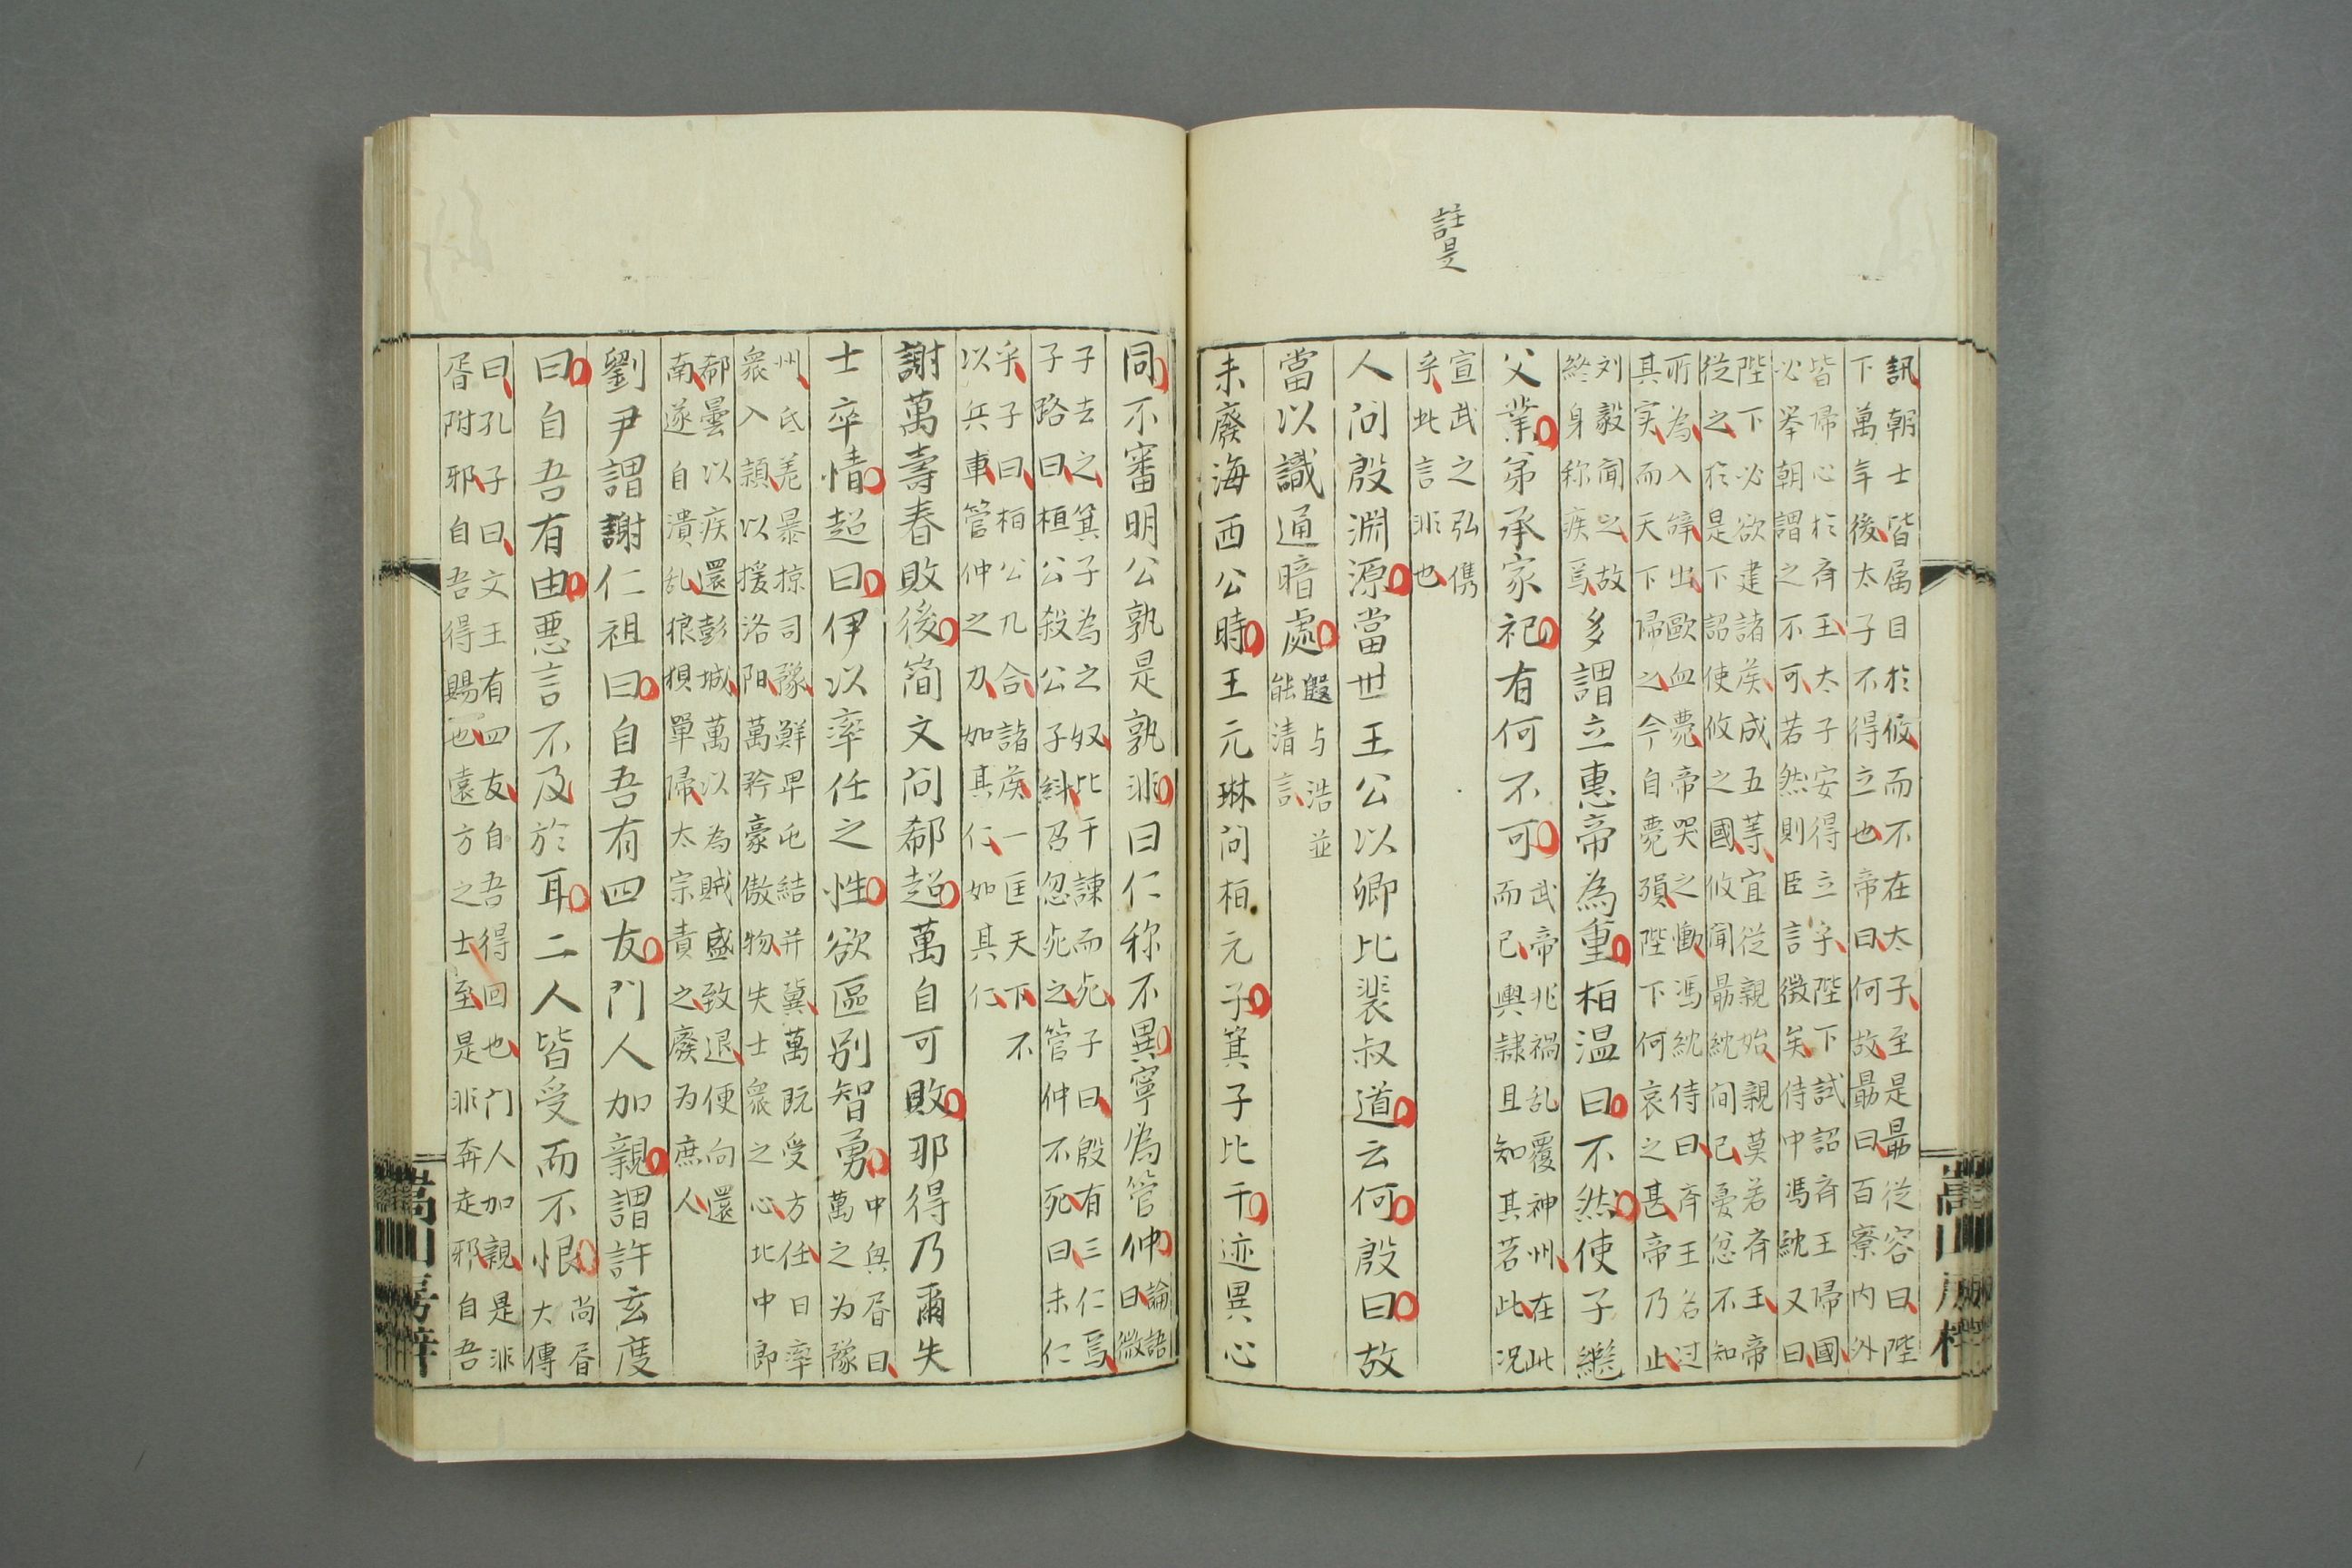 註是
訊朝士皆属目於攸而不在太子至是朂從容曰陛
下萬年後太子不得立也帝曰何故朂曰百寮内外
皆帰心於斉王太子安得立乎陛下試詔斉王帰國
必举朝謂之不可若然則臣言徴矣侍中馮紞又曰
陛下必欲建諸侯成五等宜從親始親莫若斉王帝
従之於是下詔使攸之國攸聞朂紞间己憂忿不知
所為入辞出歐血薨帝哭之慟馮紞侍曰斉王名过
其实而天下帰之今自薨殞陛下何哀之甚帝乃止
刘毅聞之故
終身称疾焉
多謂立惠帝為重柏温曰不然使子繼
父業弟承家祀有何不可
武帝兆禍乱覆神州在此
而已輿隷且知其若此况
宣武之弘儁
乎此言非也
人问殷渊源當世王公以卿比裴叔道云何殷曰故
當以識通暗處
遐与浩並
能清言
未廢海西公時王元琳问柏元子箕子比干迹異心
同不審明公孰是孰非曰仁称不異寧為管仲
論語
曰微
子去之箕子為之奴比干諫而死子曰殷有三仁焉
子路曰桓公殺公子糾召忽死之管仲不死曰未仁
乎子曰柏公九合諸侯一匡天下不
以兵車管仲之力如其仁如其仁
謝萬壽春敗後简文问郗超萬自可敗那得乃爾失
士卒情超曰伊以率任之性欲區别智勇
中興書曰
萬之为豫
州氐羌暴掠司豫鮮卑屯結并冀萬既受方任日率
衆入潁以援洛阳萬矜豪傲物失士衆之心北中郎
郗曇以疾還彭城萬以為贼盛致退便向還
南遂自潰乱狼狽單帰太宗責之廢为庶人
劉尹謂謝仁祖曰自吾有四友门人加親謂許玄度
曰自吾有由悪言不及於耳二人皆受而不恨
尚书
大傳
曰孔子曰文王有四友自吾得回也门人加親是非
胥附邪自吾得賜也遠方之士至是非奔走邪自吾